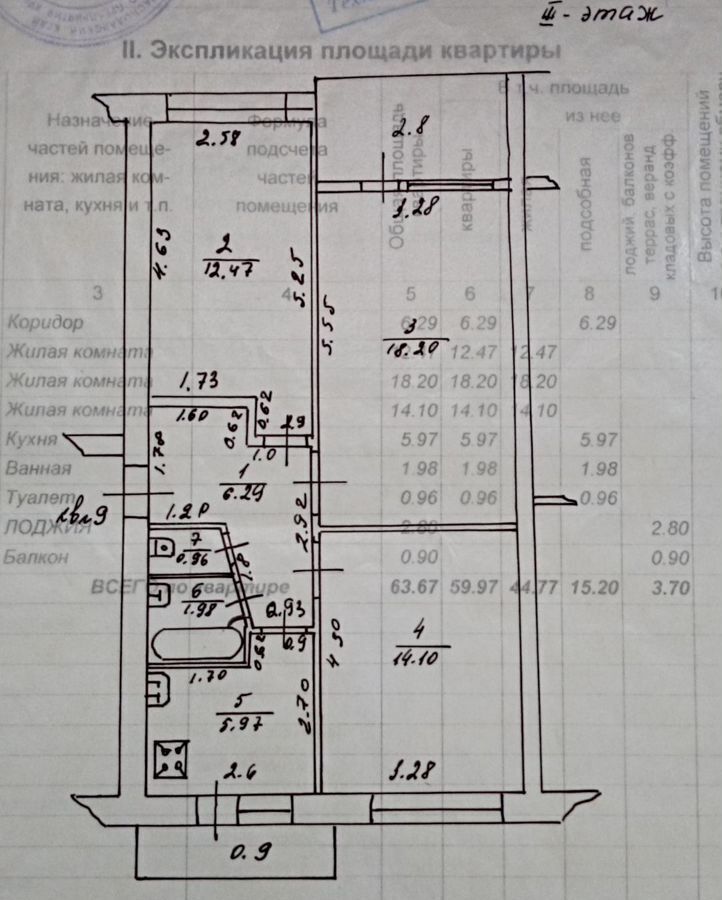 III - этаж
II. Экспликация площади квартиры
В т.ч. площадь
из нее
Назначение
частей помеще-
ния: жилая ком-
ната, кухня и т.п.
Формула
подсчета
частей
помещения
Общая площадь
квартиры
квартиры
жилая
подсобная
лоджий, балконов
террас, веранд
кладовых с коэфф
Высота помещений
3 4 5 6 7 8 9 10
Коридор 6.29 6.29 6.29
Жилая комната 12.47 12.47
Жилая комната 18.20 18.20 18.20
Жилая комната 14.10 14.10 14.10
Кухня 5.97 5.97 5.97
Ванная 1.98 1.98 1.98
Туалет 0.96 0.96 0.96
ЛОДЖИЯ 2.80 2.80
Балкон 0.90 0.90
ВСЕГО по квартире 63.67 59.97 44.77 15.20 3.70
2.58
2.8
3.28
4.63
2
12.47
5.25
5.55
3
18.20
1.73
1.60
0.62
0.62
0.9
1.0
1.78
1
6.29
кв 9
1.20
2.92
7
0.96
1.8
6
1.98
0.93
0.9
0.62
4.30
4
14.10
1.70
5
5.97
2.70
2.6
3.28
0.9